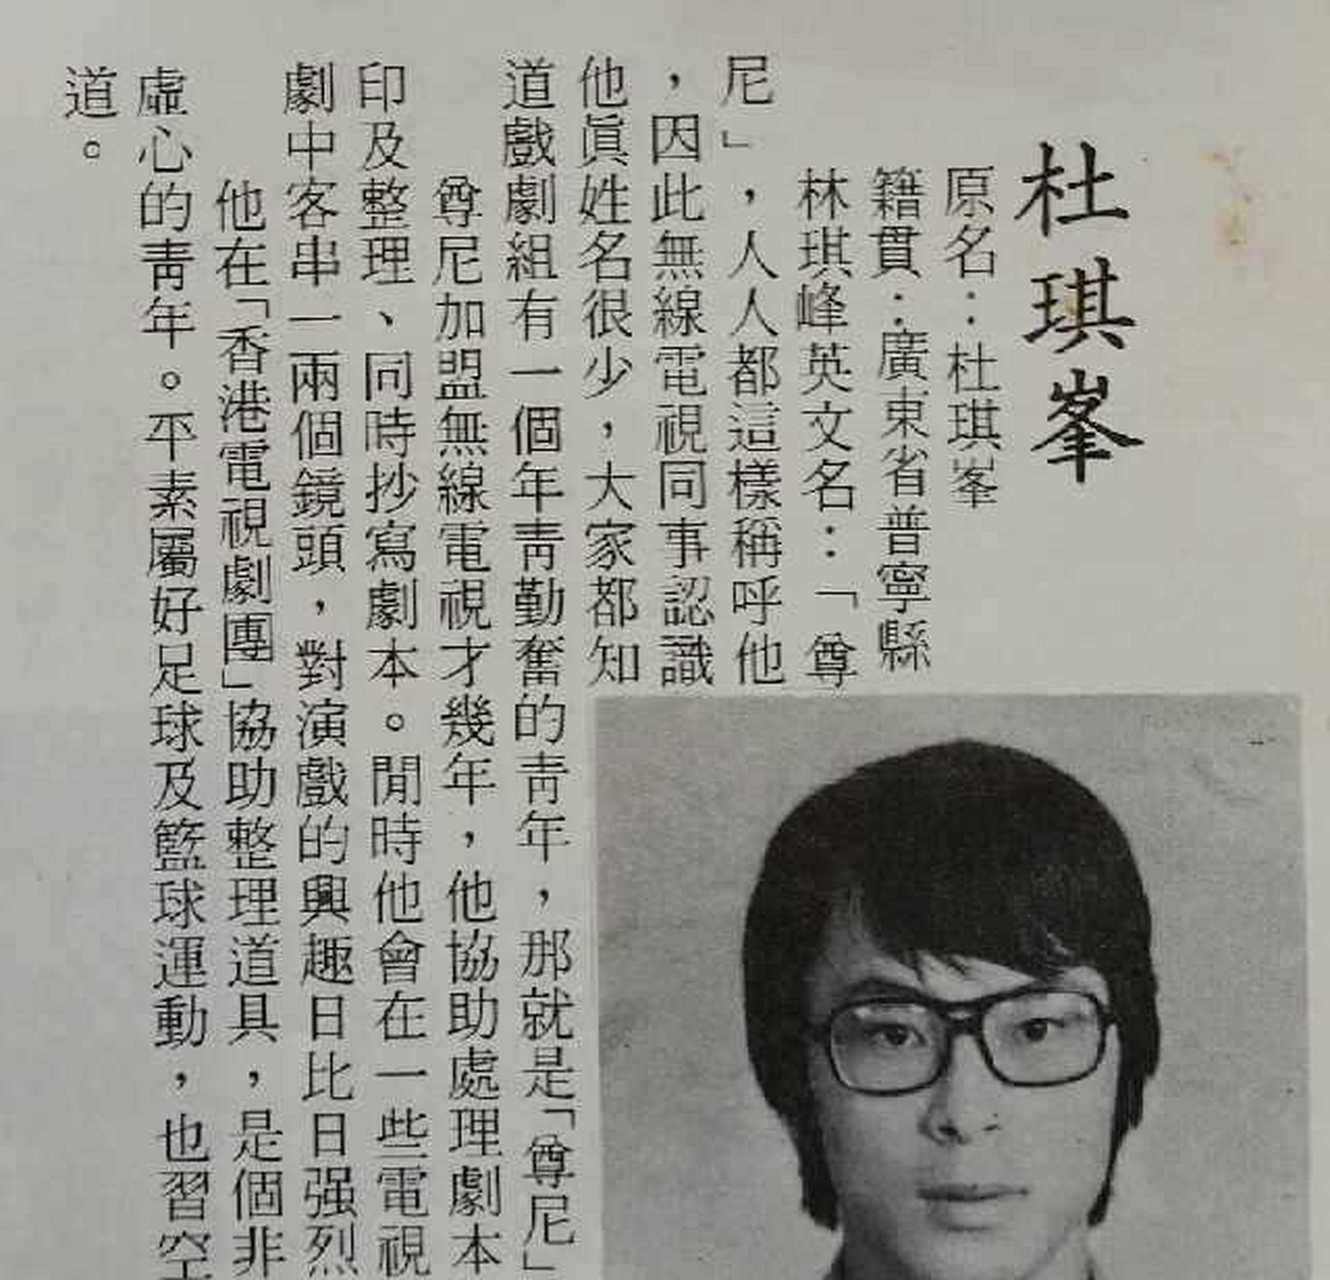 杜琪峯
原名：杜琪峯
籍貫：廣東省普寧縣
林琪峰英文名：「尊
尼」，人人都這樣稱呼他
，因此無線電視同事認識
他眞姓名很少，大家都知
道戲劇組有一個年靑勤奮的靑年，那就是「尊尼」
尊尼加盟無線電視才幾年，他協助處理劇本
印及整理、同時抄寫劇本。閒時他會在一些電視
劇中客串一兩個鏡頭，對演戲的興趣日比日强烈
他在「香港電視劇團」協助整理道具，是個非
虛心的靑年。平素屬好足球及籃球運動，也習空
道。